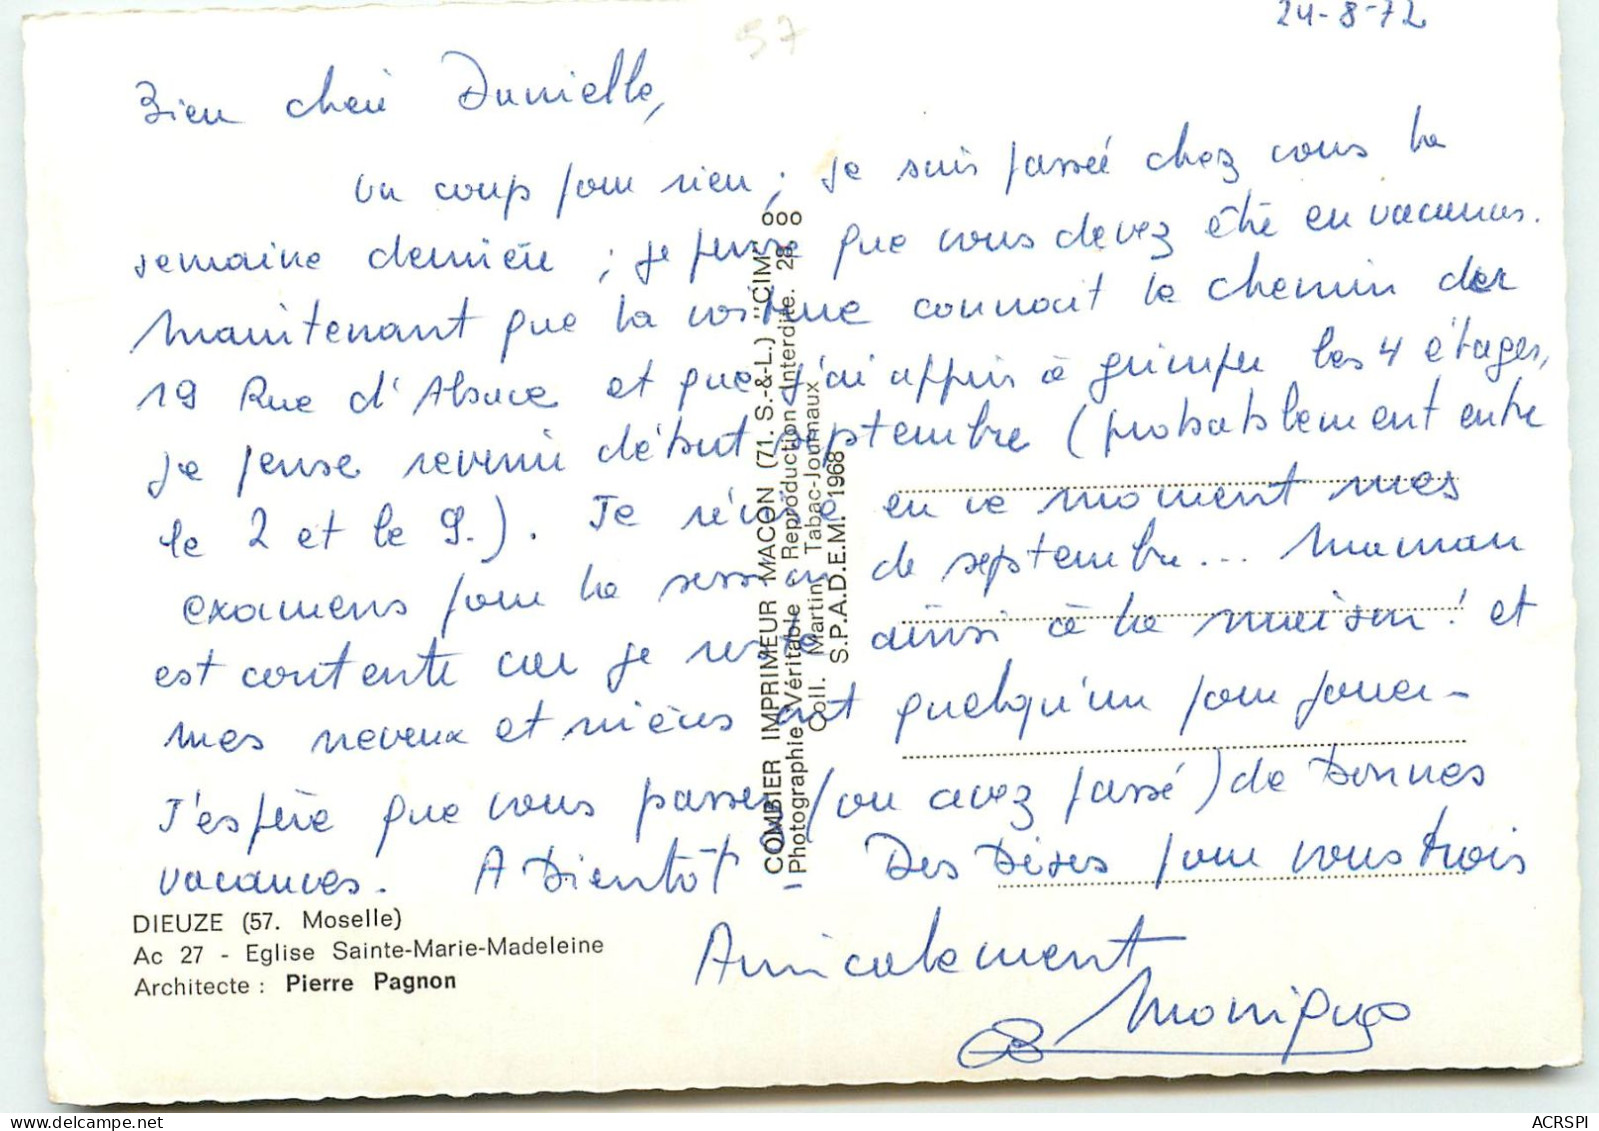 57
24-8-72
Bien chère Danielle,
un coup pour rien ; je suis passée chez vous la
semaine dernière ; je pense que vous devez être en vacances.
Maintenant que la voiture connait le chemin der
19 Rue d'Alsace et que j'ai appris à grimper les 4 étages,
je pense revenir début septembre (probablement entre
le 2 et le 9.). Je révise en ce moment mes
examens pour la session de septembre... Maman
est contente car je reste ainsi à la maison ! et
mes neveux et nièces ont quelqu'un pour jouer -
J'espère que vous passez (ou avez passé) de bonnes
vacances. A Bientôt - Des Bises pour vous trois
Amicalement
Monique
DIEUZE (57. Moselle)
Ac 27 - Eglise Sainte-Marie-Madeleine
Architecte : Pierre Pagnon
COMBIER IMPRIMEUR MACON (71. S.-&-L.) "CIM"
Photographie Véritable Reproduction Interdite. 28
Coll. Martin, Tabac-Journaux
S.P.A.D.E.M. 1968
delcampe.net
ACRSPI